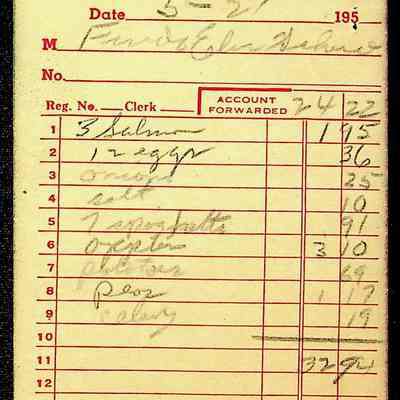 Date 5-2 195
M
No.
Reg. No. Clerk ACCOUNT FORWARDED 24 22
1 3 Salmon 1 95
2 12 eggs 36
3 onions 25
4 salt 10
5 7 spaghetts 91
6 oysters 3 10
7 potatoes 69
8 peas 1 17
9 salary 19
10
11 32 94
12